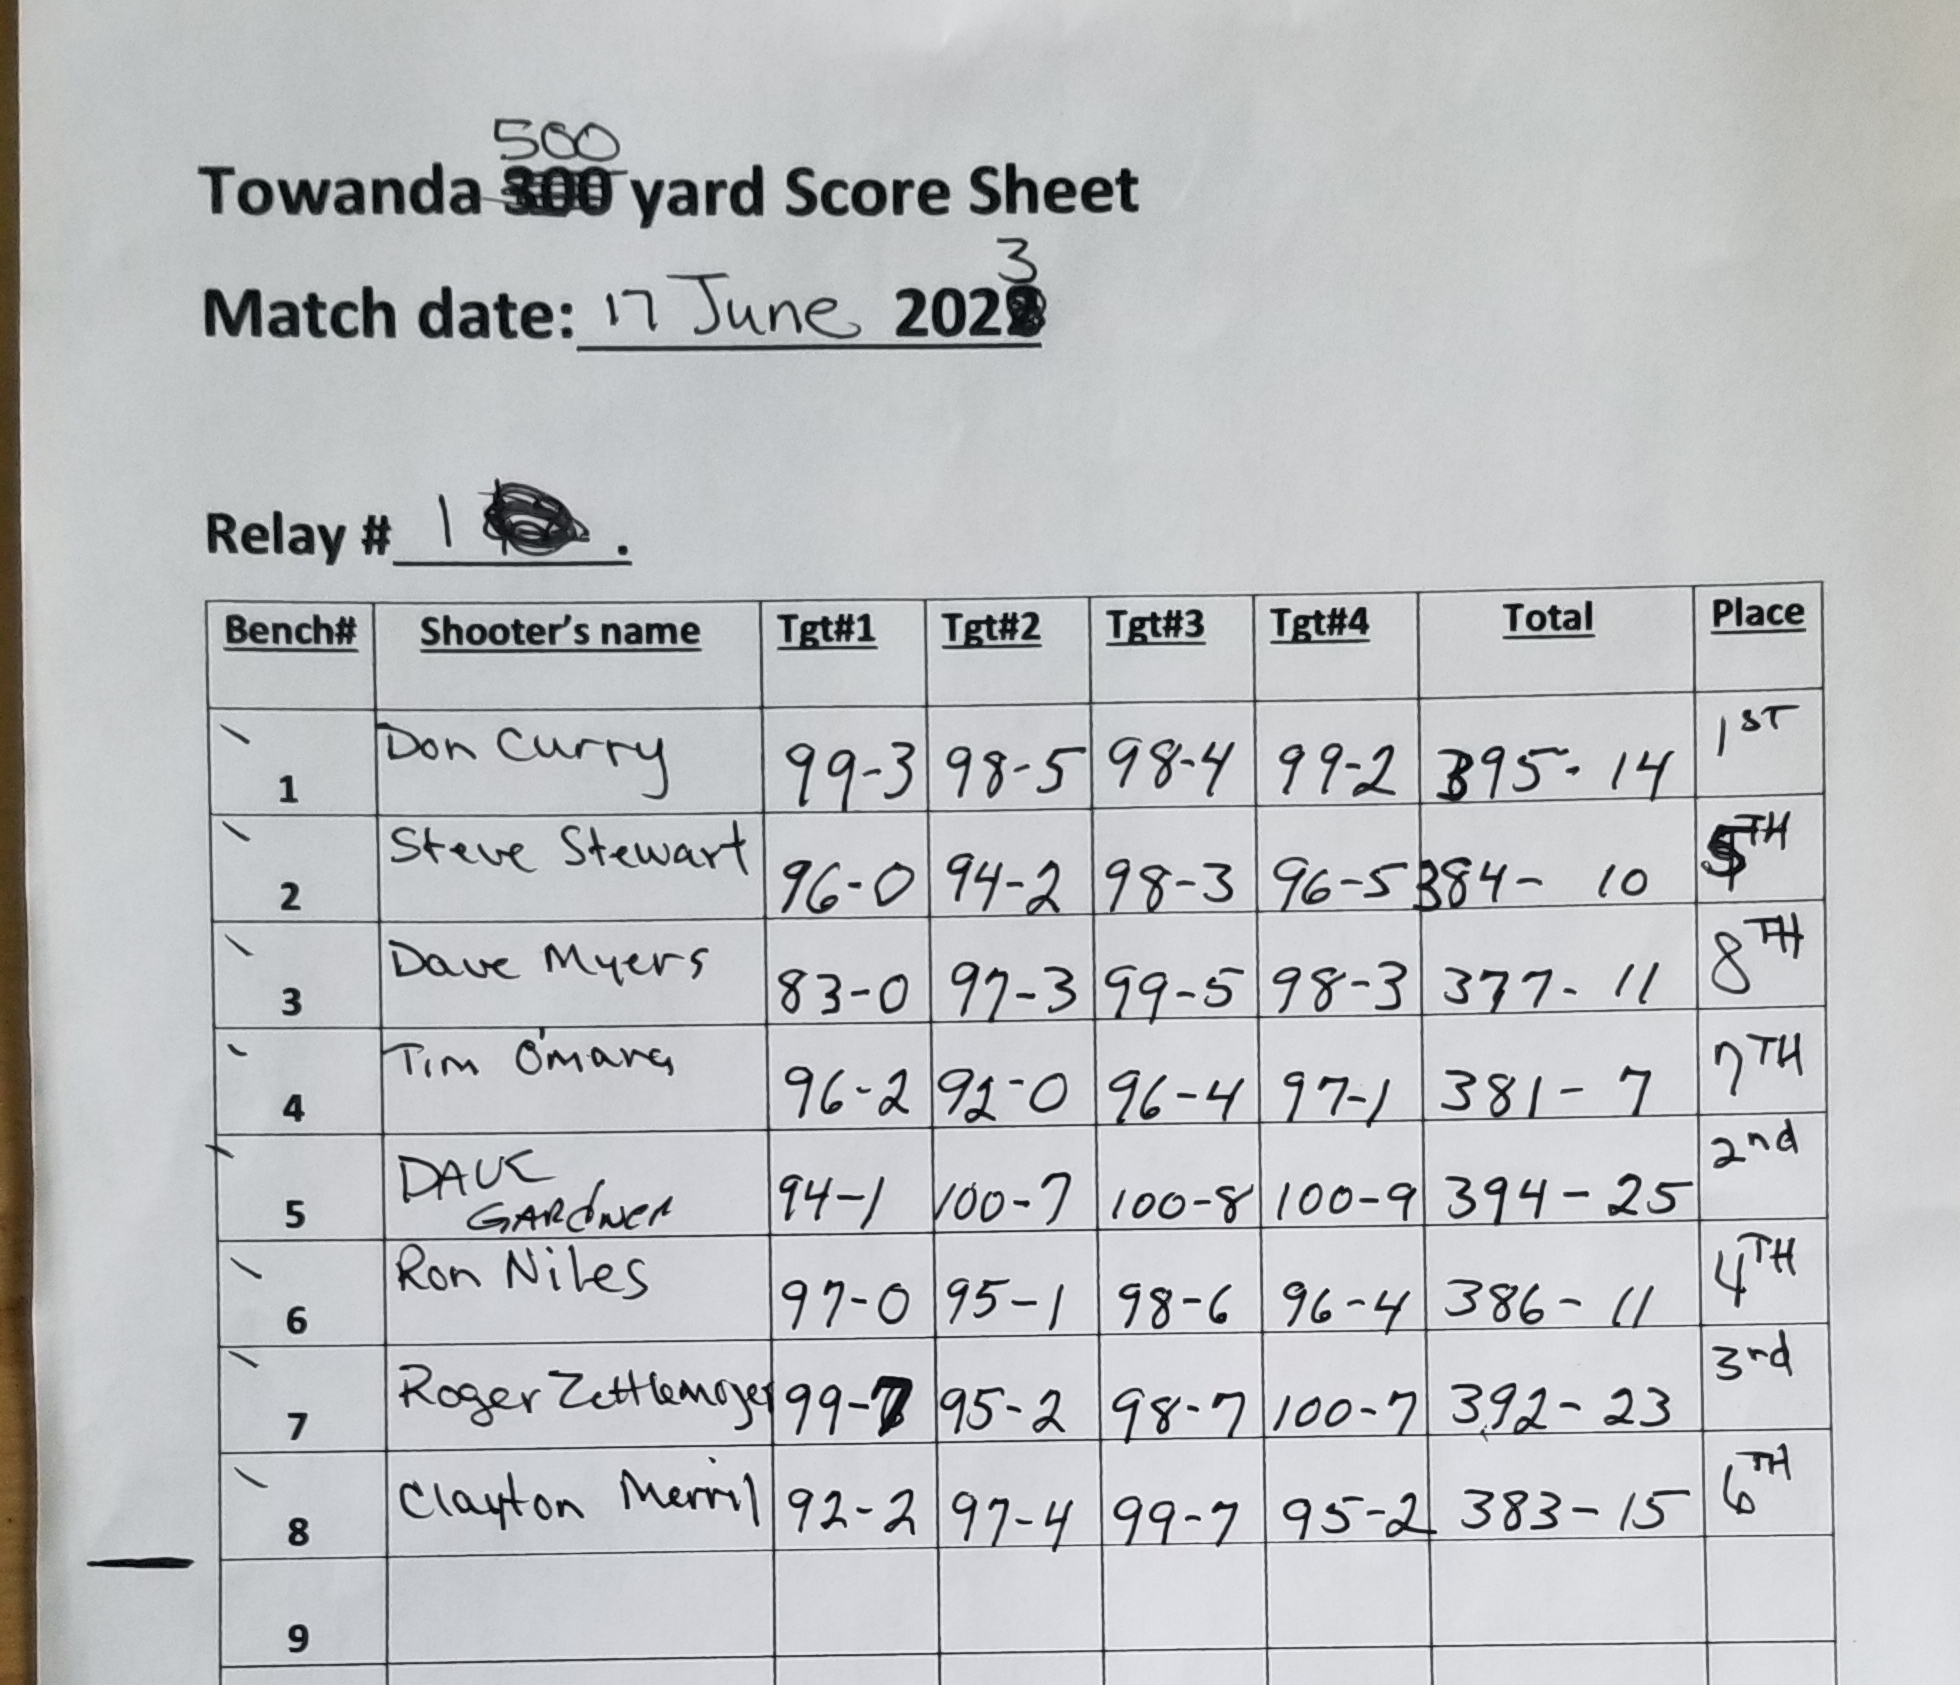 500
Towanda 300 yard Score Sheet
3
Match date: 17 June 202
Relay # 1 .
Bench# Shooter's name Tgt#1 Tgt#2 Tgt#3 Tgt#4 Total Place
1 Don Curry 99-3 98-5 98-4 99-2 395-14 1ST
2 Steve Stewart 96-0 94-2 98-3 96-5 384-10 5TH
3 Dave Myers 83-0 97-3 99-5 98-3 377-11 8TH
4 Tim O'mara 96-2 92-0 96-4 97-1 381-7 7TH
5 DAVE GARDNER 94-1 100-7 100-8 100-9 394-25 2nd
6 Ron Niles 97-0 95-1 98-6 96-4 386-11 4TH
7 Roger Zettlemoyer 99-7 95-2 98-7 100-7 392-23 3rd
8 Clayton Merril 92-2 97-4 99-7 95-2 383-15 6TH
9